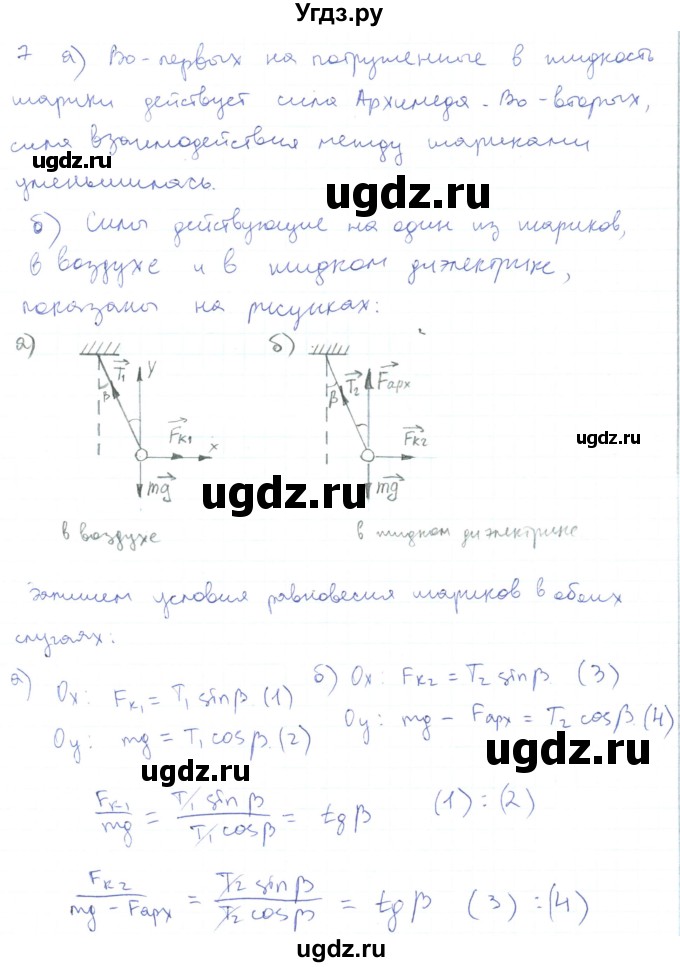 Угдз.ру
7 а) Во-первых на погруженные в жидкость
шарики действует сила Архимеда. Во-вторых,
сила взаимодействия между шариками
уменьшилась.
ugdz.ru
ugdz.ru
б) Силы действующие на один из шариков,
в воздухе и в жидком диэлектрике,
показаны на рисунках:
а) б)
T₁ y β F_к1 x mg
T₂ F_арх β F_к2 mg
ugdz.ru
ugdz.ru
в воздухе в жидком диэлектрике
Запишем условия равновесия шариков в обоих
случаях:
а) Ox: F_к1 = T₁ sinβ. (1) б) Ox: F_к2 = T₂ sinβ (3)
Oy: mg = T₁ cosβ. (2) Oy: mg − F_арх = T₂ cosβ. (4)
ugdz.ru
ugdz.ru
F_к1/mg = T₁ sinβ/T₁ cosβ = tgβ (1) : (2)
F_к2/(mg − F_арх) = T₂ sinβ/T₂ cosβ = tgβ (3) : (4)
ugdz.ru